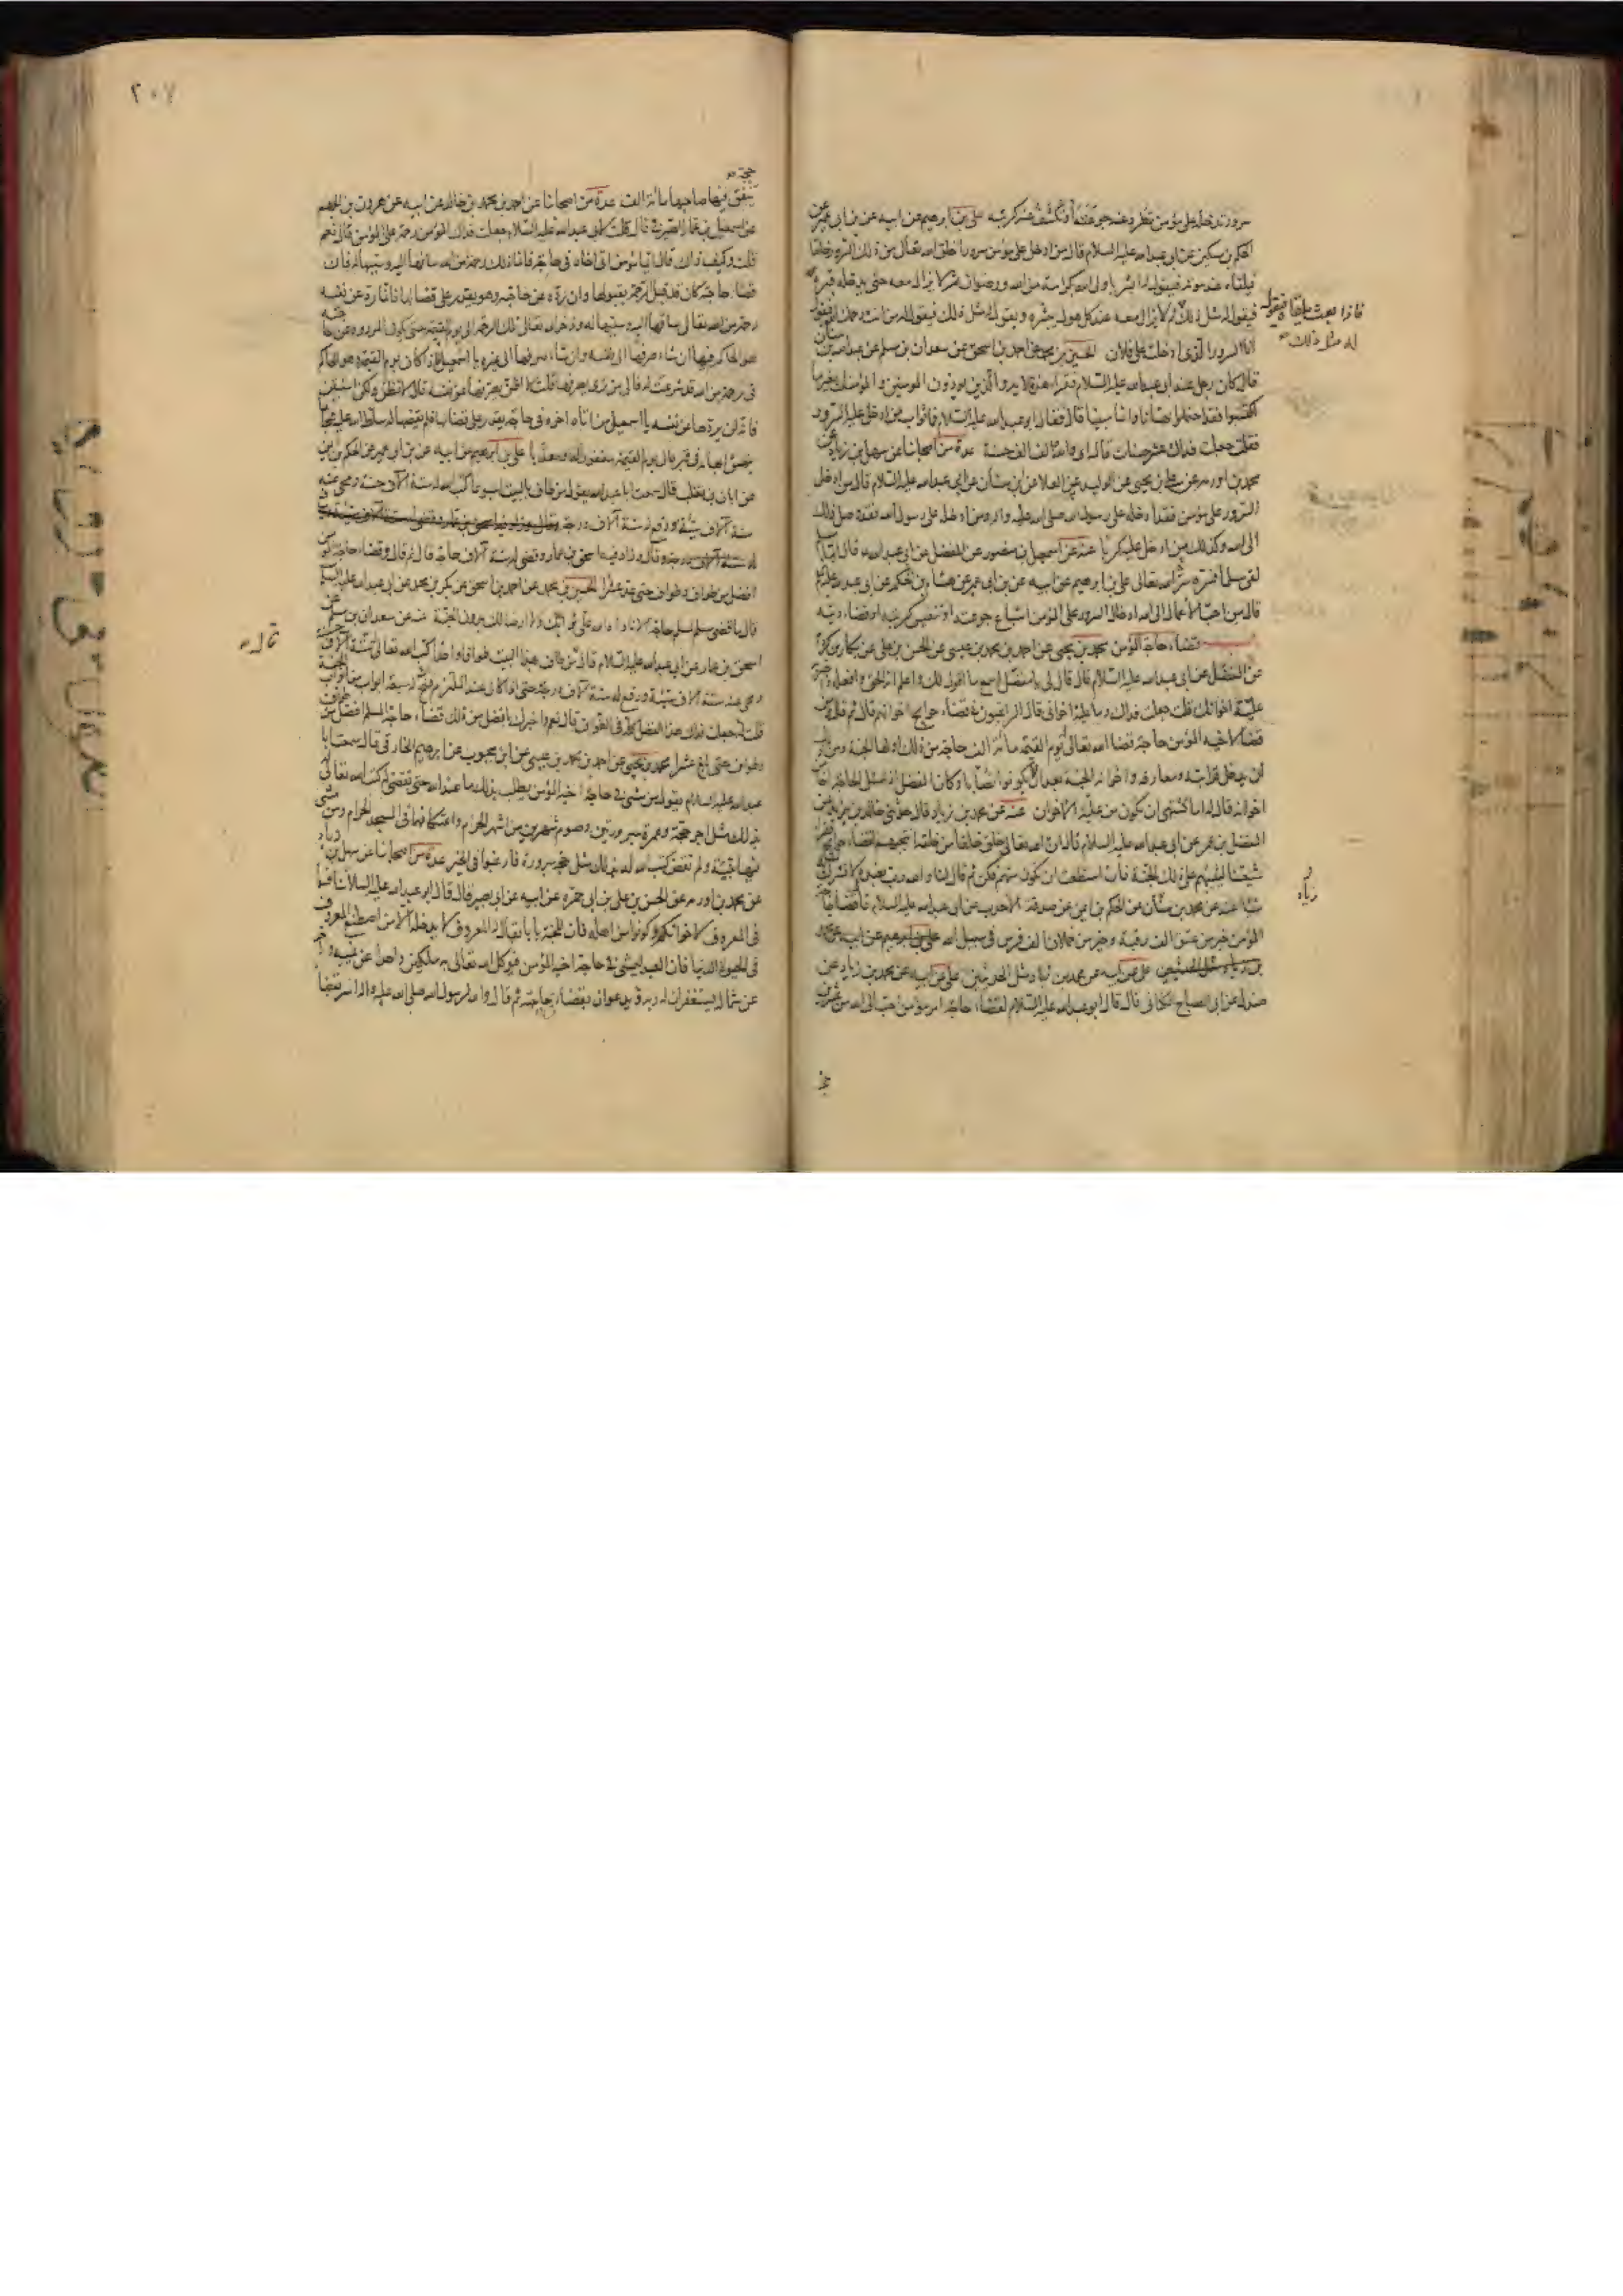 سرور تدخله على مؤمن تطرد عنه جوعته أو تكشف عنه كربته على بن ابرهيم عن ابيه عن بن ابى عمير عن
الحكم بن مسكين عن ابى عبدالله عليه السلام قال من ادخل على مؤمن سرورا خلق الله تعالى من ذلك السرور خلقا
فيلقاه عند موته فيقول له ابشر يا ولى الله بكرامة من الله ورضوان ثم لا يزال معه حتى يدخله قبره
فيقول له مثل ذلك ثم لا يزال معه عند كل هول يبشره ويقول له مثل ذلك فيقول له من انت رحمك الله فيقول
فاذا بعث يلقاه فيقول
له مثل ذلك
انا السرور الذى ادخلته على فلان الحسين بن محمد عن احمد بن اسحق عن سعدان بن مسلم عن عبدالله بن سنان
قال كان رجل عند ابى عبدالله عليه السلام فقرأ هذه الاية والذين يؤذون المؤمنين والمؤمنات بغير ما
اكتسبوا فقد احتملوا بهتانا واثما مبينا قال فقال ابو عبدالله عليه السلام فما ثواب من ادخل عليه السرور
فقلت جعلت فداك عشر حسنات قال اى والله الف الف حسنة عدة من اصحابنا عن سهل بن زياد عن
محمد بن اورمه عن على بن يحيى عن الوليد بن العلا عن ابن سنان عن ابى عبدالله عليه السلام قال من ادخل
السرور على مؤمن فقد ادخله على رسول الله صلى الله عليه واله ومن ادخله على رسول الله فقد وصل ذلك
الى الله وكذلك من ادخل عليه كربا عنه عن اسمعيل بن منصور عن المفضل عن ابى عبدالله قال ايما مسلم
لقى مسلما فسره سره الله تعالى على بن ابرهيم عن ابيه عن بن ابى عمير عن هشام بن الحكم عن ابى عبدالله
قال من احب الاعمال الى الله ادخال السرور على المؤمن اشباع جوعته او تنفيس كربته او قضاء دينه
قضاء حاجة المؤمن محمد بن يحيى عن احمد بن محمد بن عيسى عن الحسن بن على عن بكار بن كردم
عن المفضل عن ابى عبدالله عليه السلام قال قال لى يا مفضل اسمع ما اقول لك واعلم انه الحق وافعله واخبر به
علية اخوانك قلت جعلت فداك وما علية اخوانى قال الراغبون فى قضاء حوايج اخوانهم قال ثم قال ومن
قضا لاخيه المؤمن حاجة قضا الله تعالى له يوم القيمة مائة الف حاجة من ذلك اولها الجنة ومن ذلك
ان يدخل قرابته ومعارفه واخوانه الجنة بعد ان لا يكونوا نصابا وكان المفضل اذ سئل الحاجة اخا من
اخوانه قال له اما تشتهى ان تكون من علية الاخوان عنه عن محمد بن زياد قال حدثنى خالد بن يزيد عن
المفضل بن عمر عن ابى عبدالله عليه السلام قال ان الله تعالى خلق خلقا من خلقه انتجبهم لقضاء حوايج فقراء
شيعتنا ليثيبهم على ذلك الجنة فان استطعت ان تكون منهم فكن ثم قال لنا والله رب نعبده لا نشرك به
زياد
شيئا عنه عن محمد بن سنان عن الحكم بن ايمن عن صدقة الاحدب عن ابى عبدالله عليه السلام قال قضاء حاجة
المؤمن خير من عتق الف رقبة وخير من حملان الف فرس فى سبيل الله على بن ابرهيم عن ابيه عن محمد
على عن ابيه عن محمد بن زياد مثل الحديثين على عن ابيه عن محمد بن زياد عن
صندل عن ابى الصباح الكنانى قال قال ابو عبدالله عليه السلام لقضاء حاجة امرء مؤمن احب الى الله من عشرين
٢٠٧
حجة
ينفق فيها صاحبها مائة الف عدة من اصحابنا عن احمد بن محمد بن خالد عن ابيه عن هرون بن الجهم
عن اسمعيل بن عمار الصيرفى قال قلت لابى عبدالله عليه السلام جعلت فداك المؤمن رحمة على المؤمن قال نعم
قلت وكيف ذاك قال ايما مؤمن اتى اخاه فى حاجة فانما ذلك رحمة من الله ساقها اليه وسببها له فان
قضا حاجته كان قد قبل الرحمة بقبولها وان رده عن حاجته وهو يقدر على قضائها فانما رد عن نفسه
رحمة من الله تعالى ساقها اليه وسببها له وذخر الله تعالى تلك الرحمة الى يوم القيمة حتى يكون المردود عن حاجته
هو الحاكم فيها ان شاء صرفها الى نفسه وان شاء صرفها الى غيره يا اسمعيل فاذا كان يوم القيمة وهو الحاكم
فى رحمة من الله قد شرعت له فالى من ترى يصرفها قلت لا اظن يصرفها عن نفسه قال لا تظن ولكن استيقن
فانه لن يردها عن نفسه يا اسمعيل من اتاه اخوه فى حاجة يقدر على قضائها فلم يقضها له سلط الله عليه شجاعا
ينهش ابهامه فى قبره الى يوم القيمة مغفورا له او معذبا على بن ابرهيم عن ابيه عن بن ابى عمير عن الحكم بن ايمن
عن ابان بن تغلب قال سمعت ابا عبدالله يقول من طاف بالبيت اسبوعا كتب الله له ستة الاف حسنة ومحى عنه
ستة الاف سيئة ورفع له ستة الاف درجة
قال وزاد فيه اسحق بن عمار وقضى له ستة الاف حاجة قال ثم قال وقضاء حاجة المؤمن
افضل من طواف وطواف حتى عد عشرا الحسين بن محمد عن احمد بن اسحق عن بكر بن محمد عن ابى عبدالله عليه السلم
قال ما قضى مسلم لمسلم حاجة الا ناداه الله على ثوابك ولا ارضا لك بدون الجنة عنه عن سعدان بن مسلم عن
قال
اسحق بن عمار عن ابى عبدالله عليه السلام قال من طاف بهذا البيت طوافا واحدا كتب الله تعالى له ستة الاف حسنة
ومحى عنه ستة الاف سيئة ورفع له ستة الاف درجة حتى اذا كان عند الملتزم فتح له سبعة ابواب من ابواب الجنة
قلت له جعلت فداك هذا الفضل كله فى الطواف قال نعم واخبرك بافضل من ذلك قضاء حاجة المسلم افضل من طواف
وطواف حتى بلغ عشرا محمد بن يحيى عن احمد بن محمد بن عيسى عن ابن محبوب عن ابرهيم الخارقى قال سمعت ابا
عبدالله عليه السلام يقول من مشى فى حاجة اخيه المؤمن يطلب بذلك ما عند الله حتى تقضى له كتب الله تعالى له
بذلك مثل اجر حجة وعمرة مبرورتين وصوم شهرين من اشهر الحرم واعتكافهما فى المسجد الحرام ومن مشى
فيها بنية ولم تقض كتب الله له بذلك مثل حجة مبرورة فارغبوا فى الخير عدة من اصحابنا عن سهل بن زياد
عن محمد بن اورمه عن الحسن بن على بن ابى حمزه عن ابيه عن ابى بصير قال قال ابو عبدالله عليه السلام تنافسوا
فى المعروف لاخوانكم وكونوا من اهله فان للجنة بابا يقال له المعروف لا يدخله الا من اصطنع المعروف
فى الحيوة الدنيا فان العبد ليمشى فى حاجة اخيه المؤمن فيوكل الله تعالى به ملكين واحدا عن يمينه واخر
عن شماله يستغفران له ربه ويدعوان بقضاء حاجته ثم قال والله لرسول الله صلى الله عليه واله اسر بقضاء